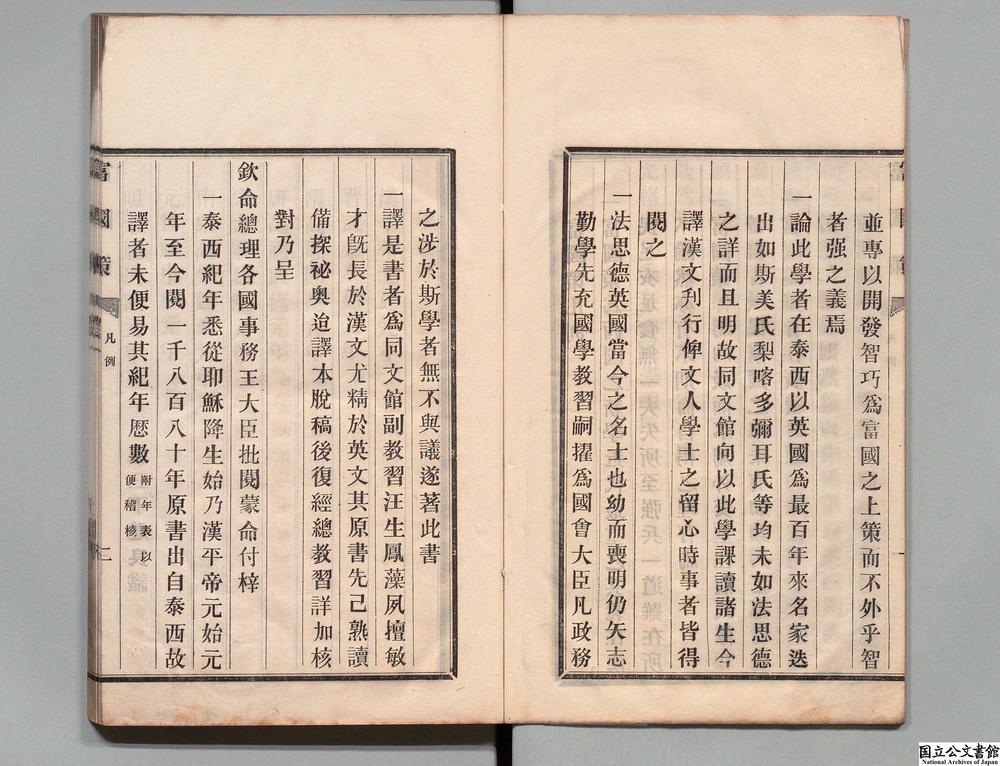 並專以開發智巧爲富國之上策而不外乎智
者强之義焉
一論此學者在泰西以英國爲最百年來名家迭
出如斯美氏梨喀多彌耳氏等均未如法思德
之詳而且明故同文館向以此學課讀諸生今
譯漢文刋行俾文人學士之留心時事者皆得
閱之
一法思德英國當今之名士也幼而喪明仍矢志
勤學先充國學教習嗣擢爲國會大臣凡政務
之涉於斯學者無不與議遂著此書
一譯是書者爲同文館副教習汪生鳳藻夙擅敏
才旣長於漢文尤精於英文其原書先已熟讀
備探祕奥迨譯本脫稿後復經總教習詳加核
對乃呈
欽命總理各國事務王大臣批閱蒙命付梓
一泰西紀年悉從耶穌降生始乃漢平帝元始元
年至今閱一千八百八十年原書出自泰西故
譯者未便易其紀年厯數附年表以
便稽核
富國策
凡例
二
国立公文書館
National Archives of Japan